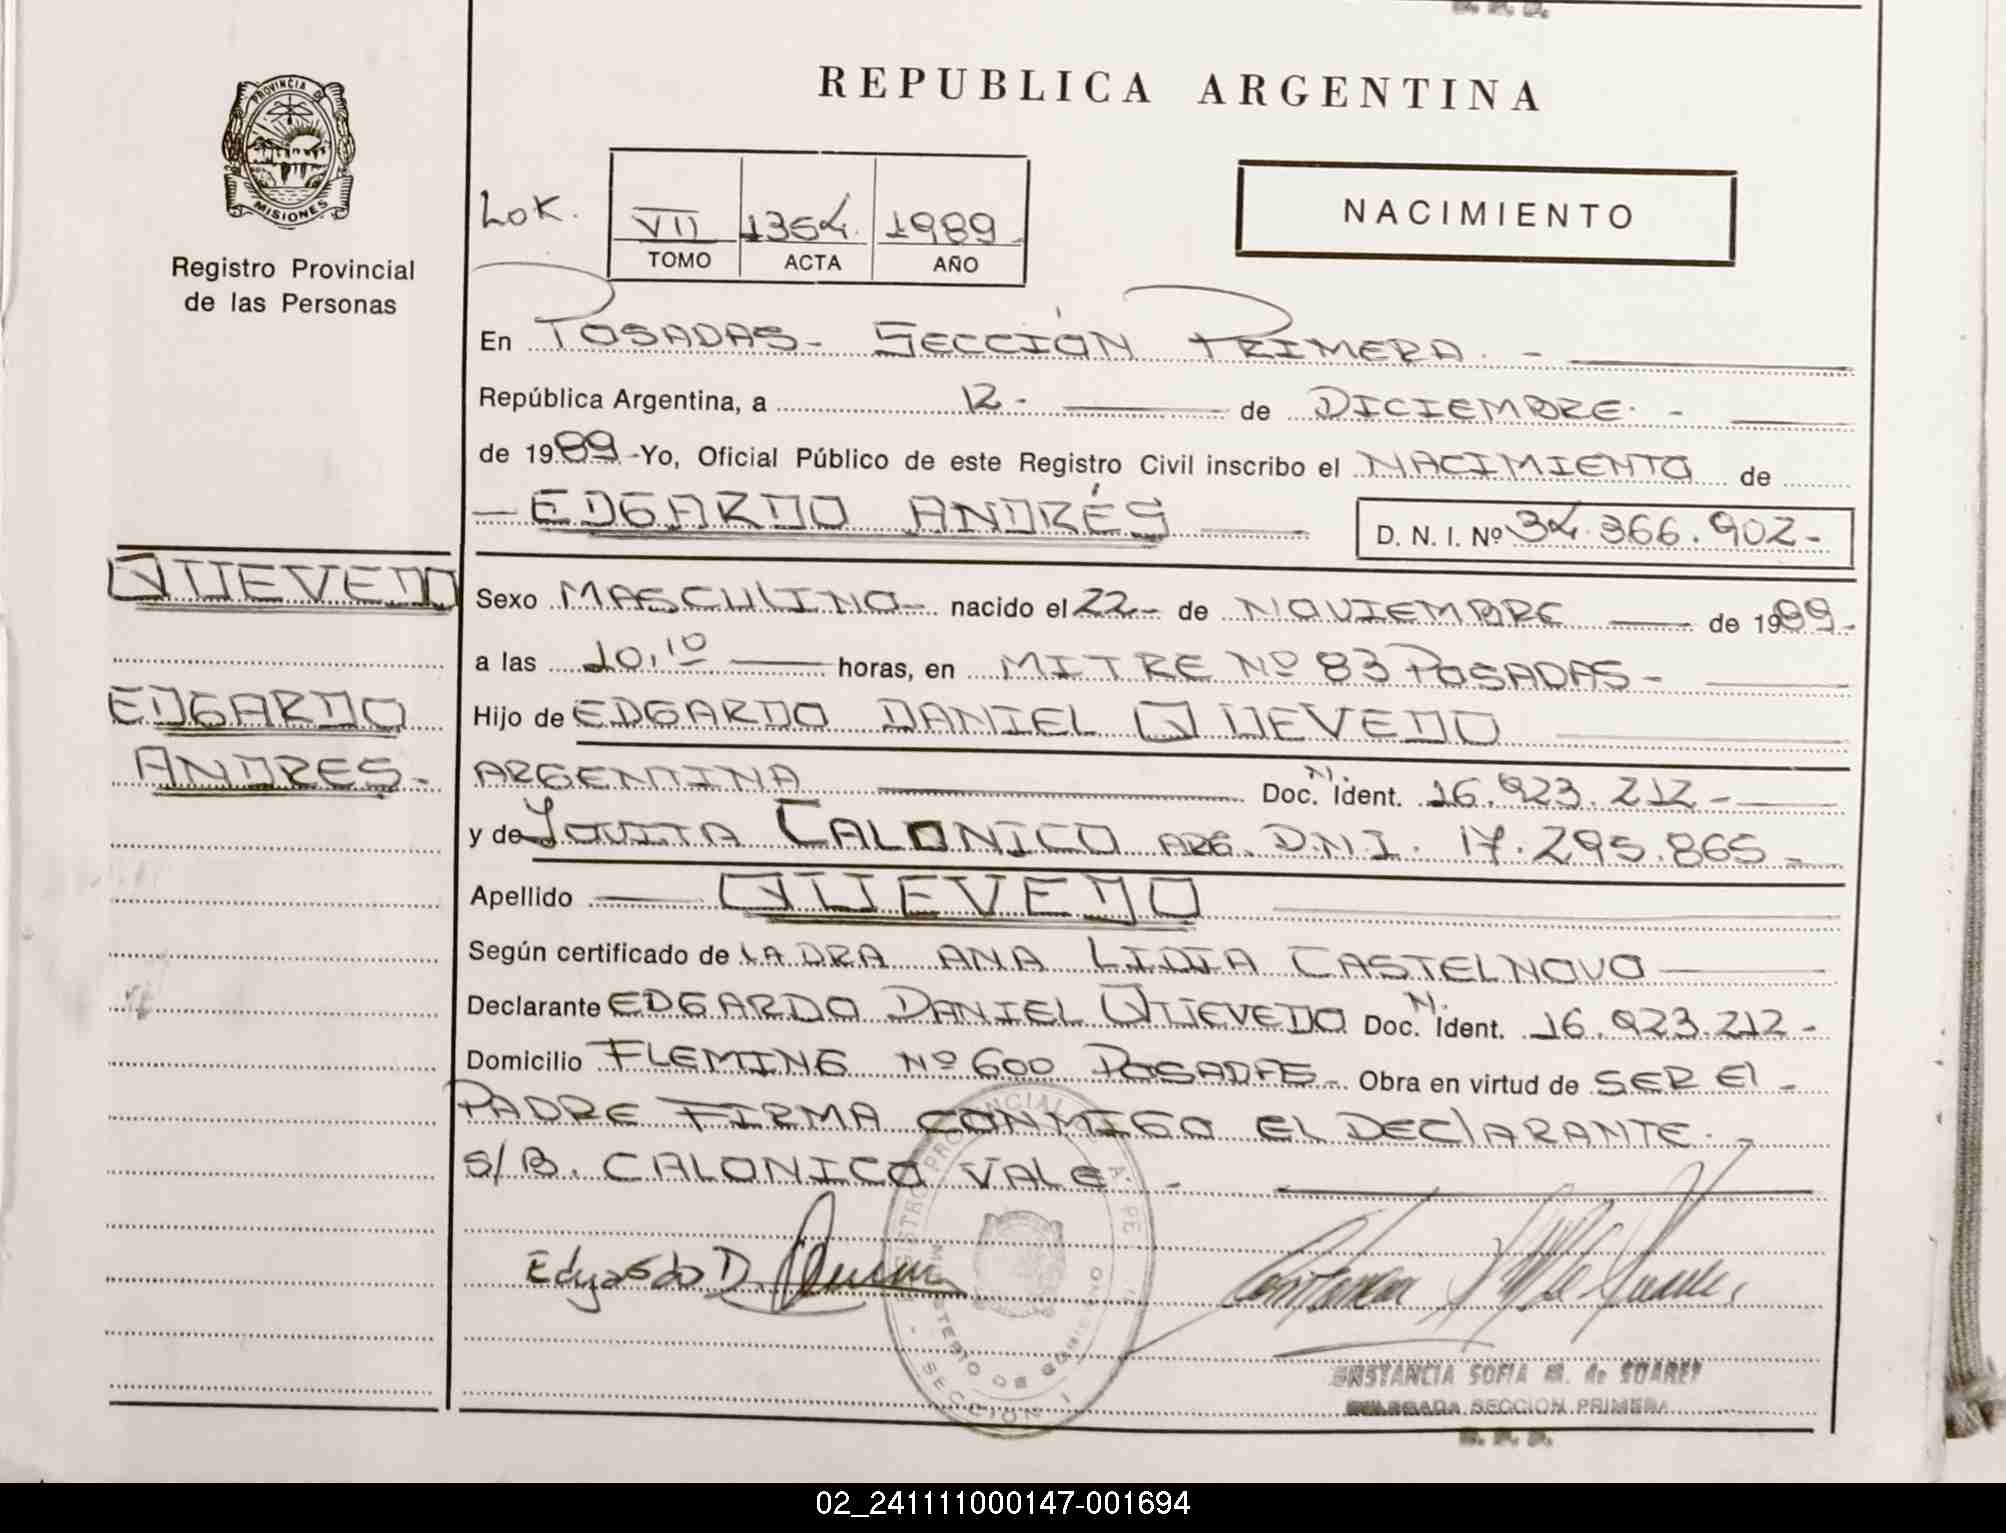 REPUBLICA ARGENTINA
PROVINCIA DE
MISIONES
Registro Provincial
de las Personas
LOK.
VII 1354. 1989.
TOMO ACTA AÑO
NACIMIENTO
En POSADAS - SECCIÓN PRIMERA. -
República Argentina, a 12 - de DICIEMBRE. -
de 1989 - Yo, Oficial Público de este Registro Civil inscribo el NACIMIENTO de
- EDGARDO ANDRÉS
D. N. I. Nº 34.366.902 -
QUEVEDO
EDGARDO
ANDRES -
Sexo MASCULINO - nacido el 22 - de NOVIEMBRE de 1989 -
a las 10,10 horas, en MITRE Nº 83 POSADAS -
Hijo de EDGARDO DANIEL QUEVEDO
ARGENTINA Doc. N. Ident. 16.923.212 -
y de JOVITA CALONICO ARG. D.N.I. 17.295.865 -
Apellido QUEVEDO
Según certificado de LA DRA ANA LIDIA CASTELNOVO
Declarante EDGARDO DANIEL QUEVEDO Doc. N. Ident. 16.923.212 -
Domicilio FLEMING Nº 600 POSADAS - Obra en virtud de SER El -
PADRE FIRMA CONMIGO EL DEClARANTE. -
S/B. CALONICO VALE. -
Edgardo D.
SECCION I
CONSTANCIA SOFIA M. de SUAREZ
DELEGADA SECCION PRIMERA
R. P. P.
02_241111000147-001694